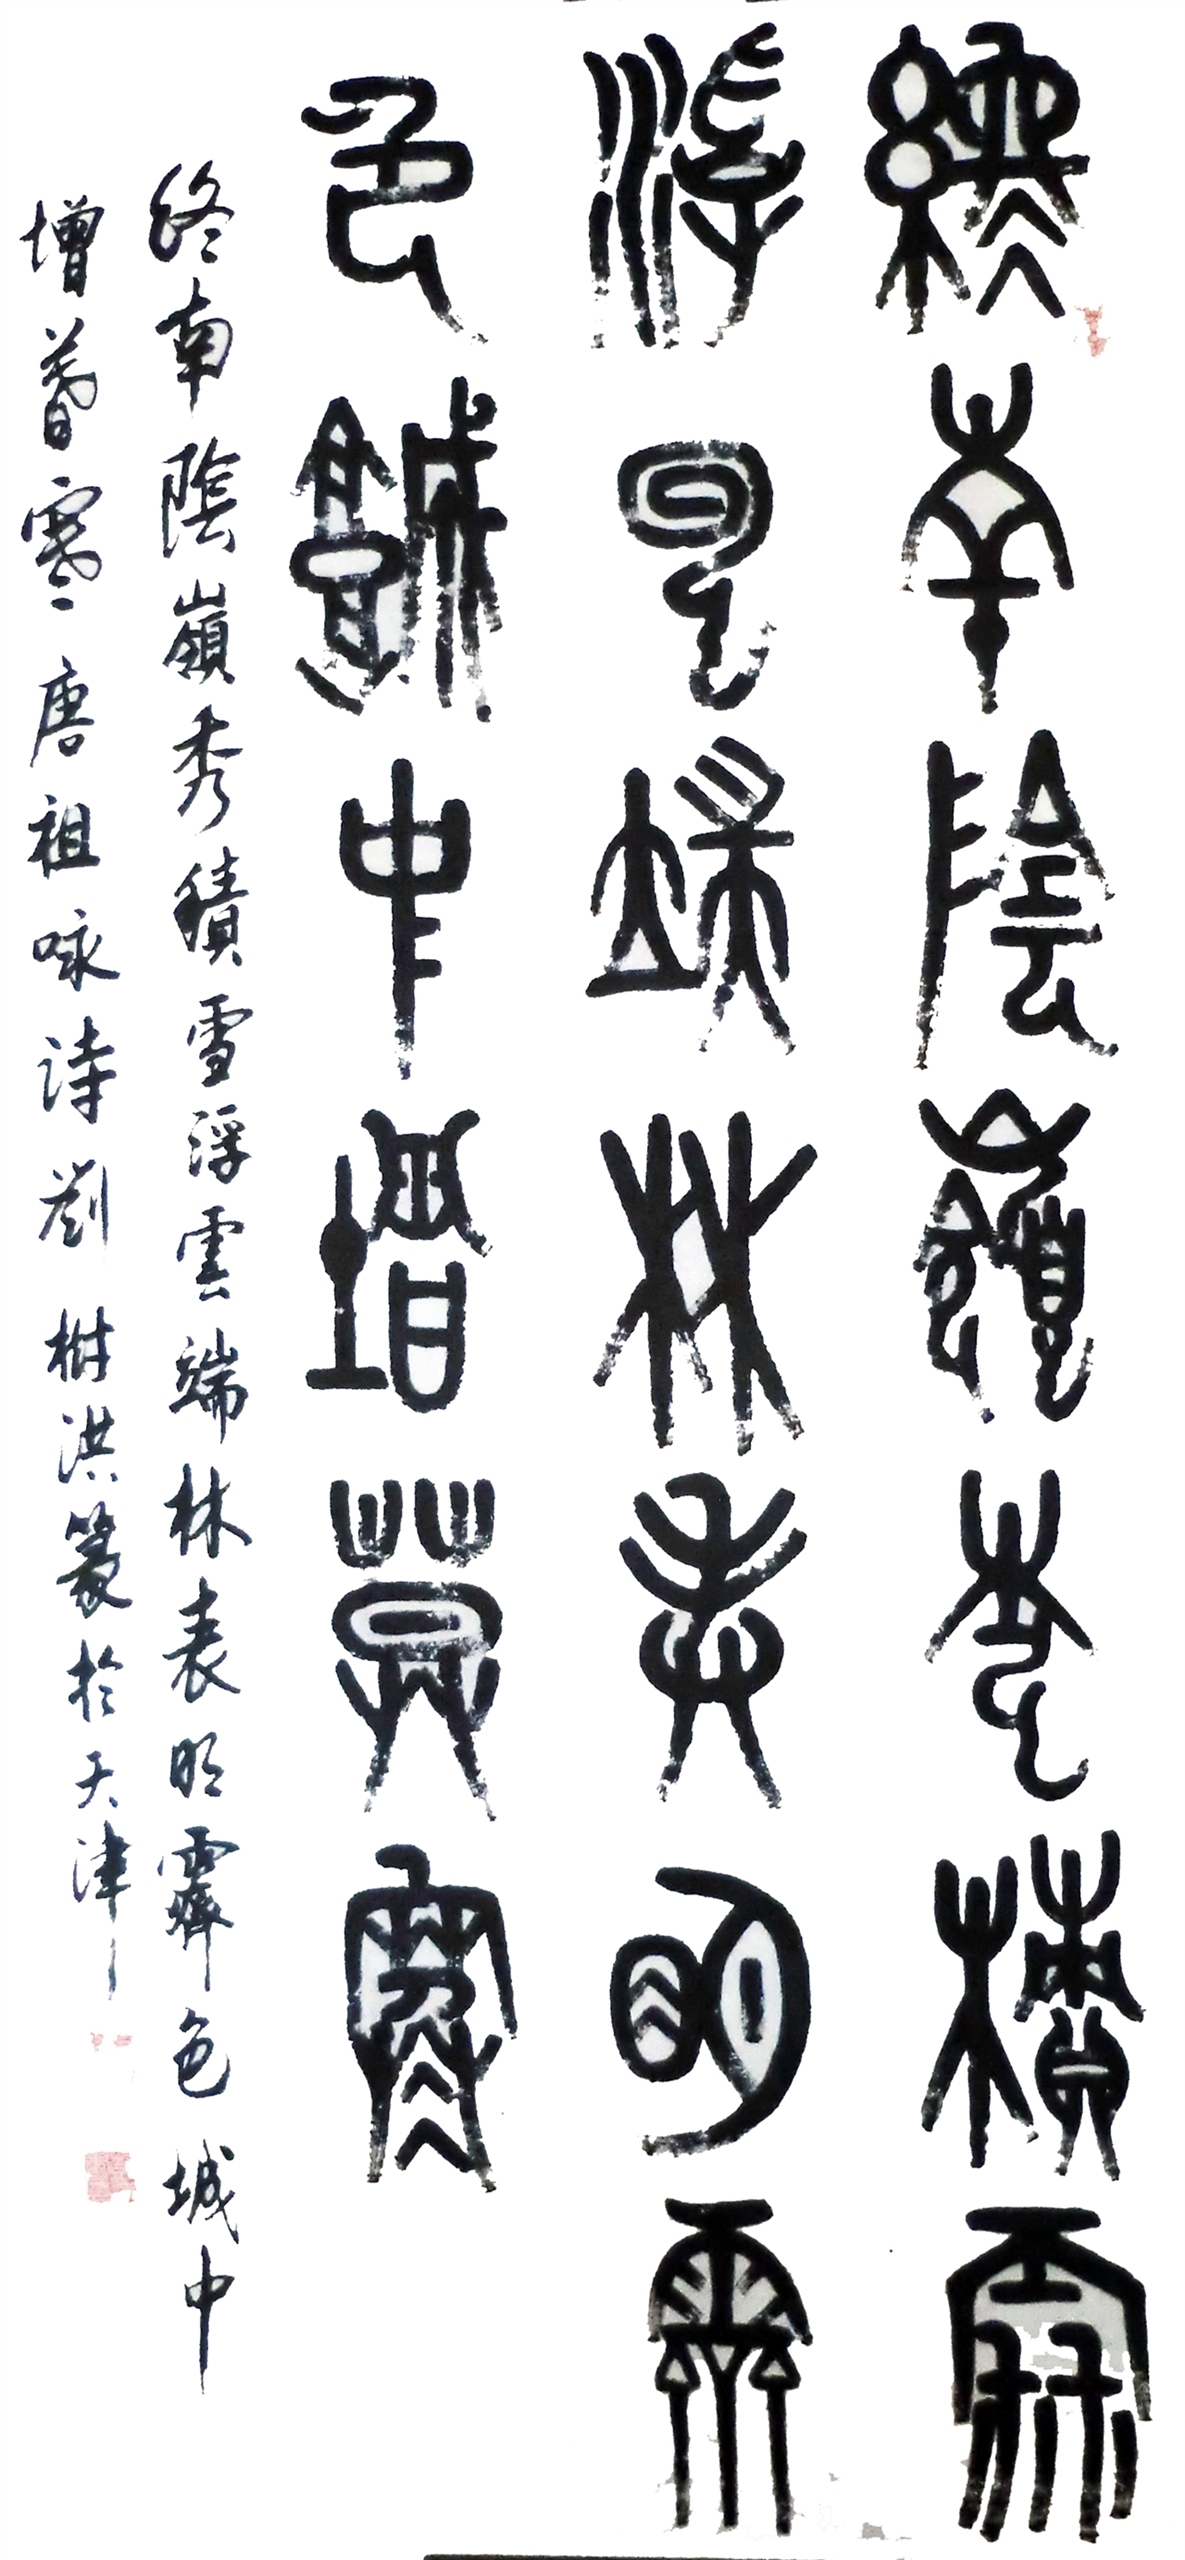 終南陰嶺秀積雪
浮雲端林表明霽
色城中增暮寒
終南陰嶺秀積雪浮雲端林表明霽色城中
增暮寒唐祖咏詩劉樹洪篆於天津